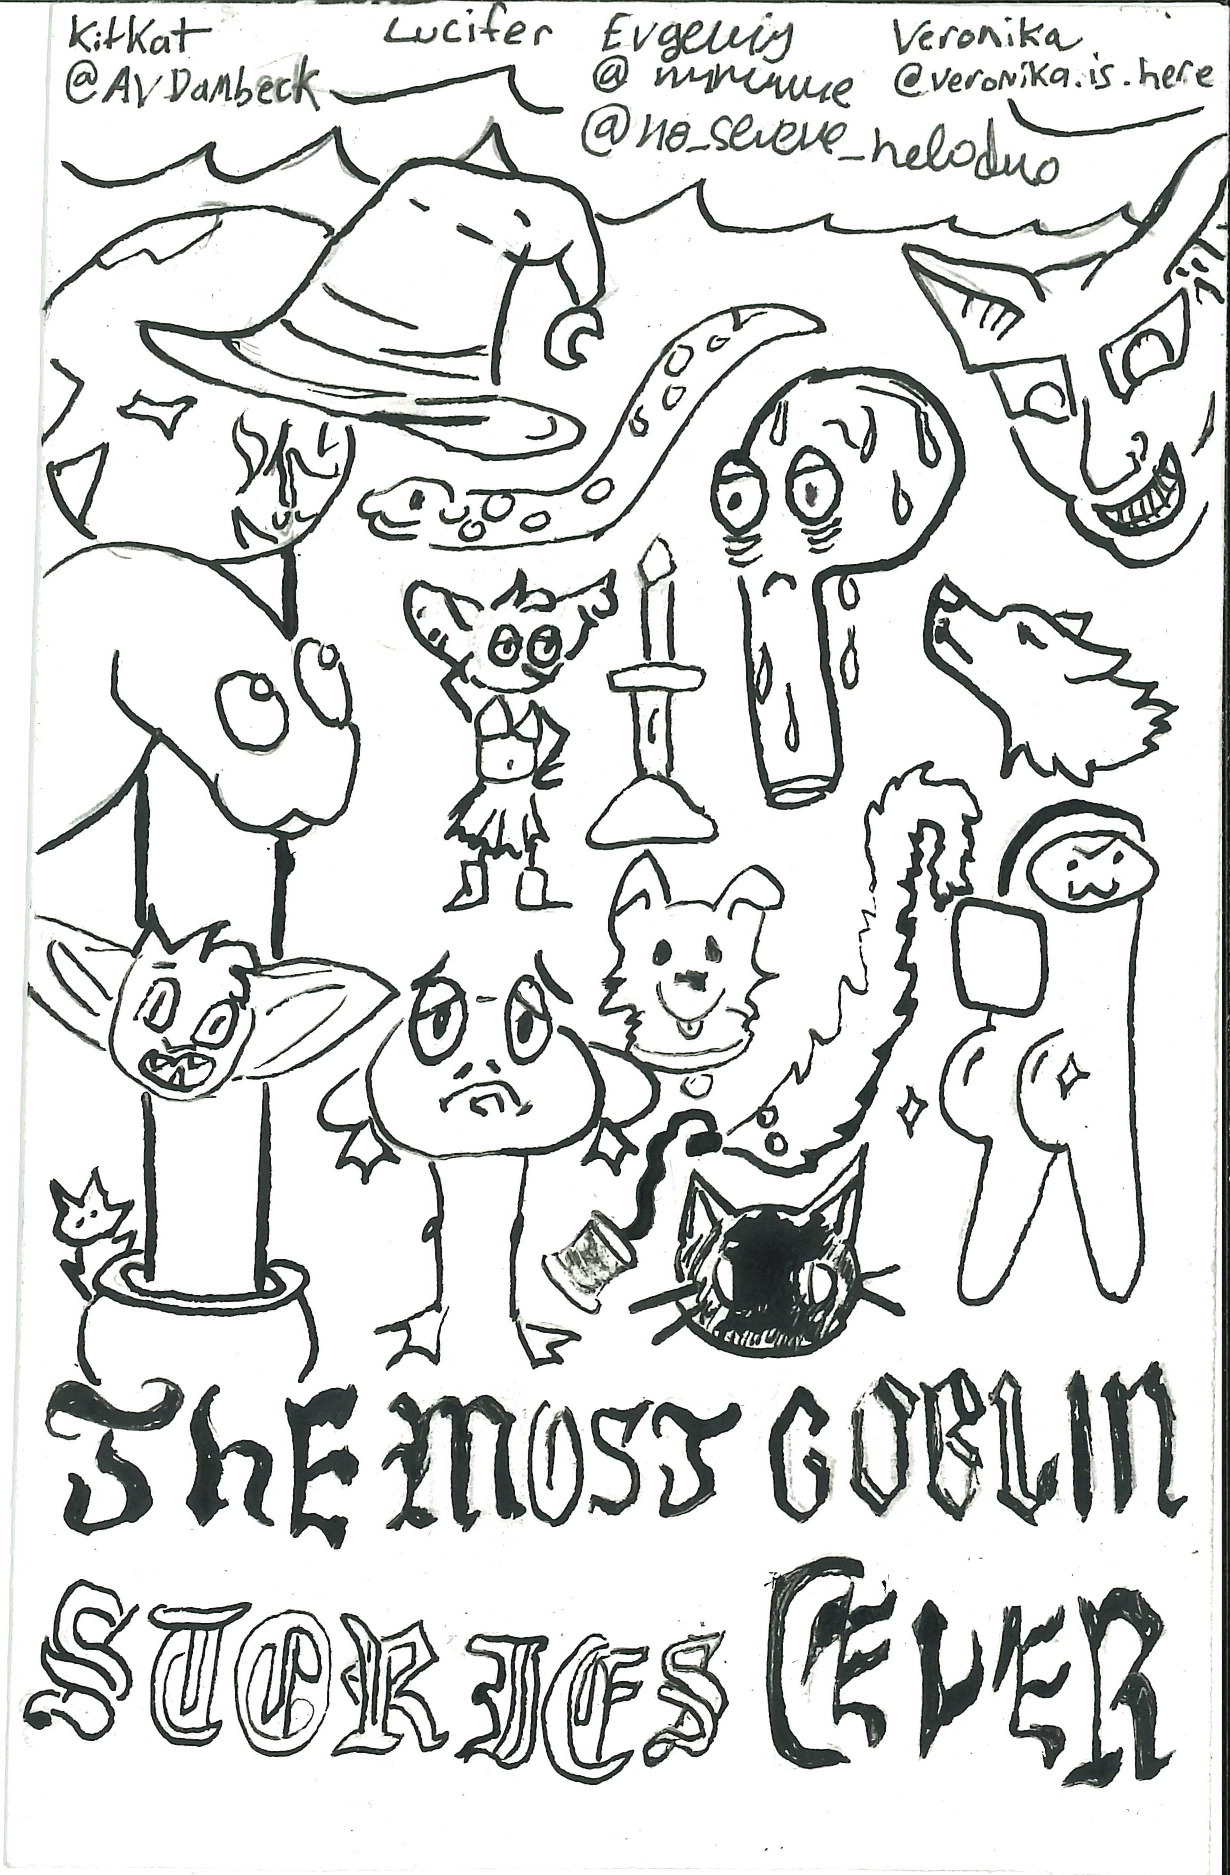 KitKat
@AVDambeck
Lucifer
Evgeniy
@
@no_severe_nelodno
Veronika
@veronika.is.here
The MOST GOBLIN
STORIES EVER